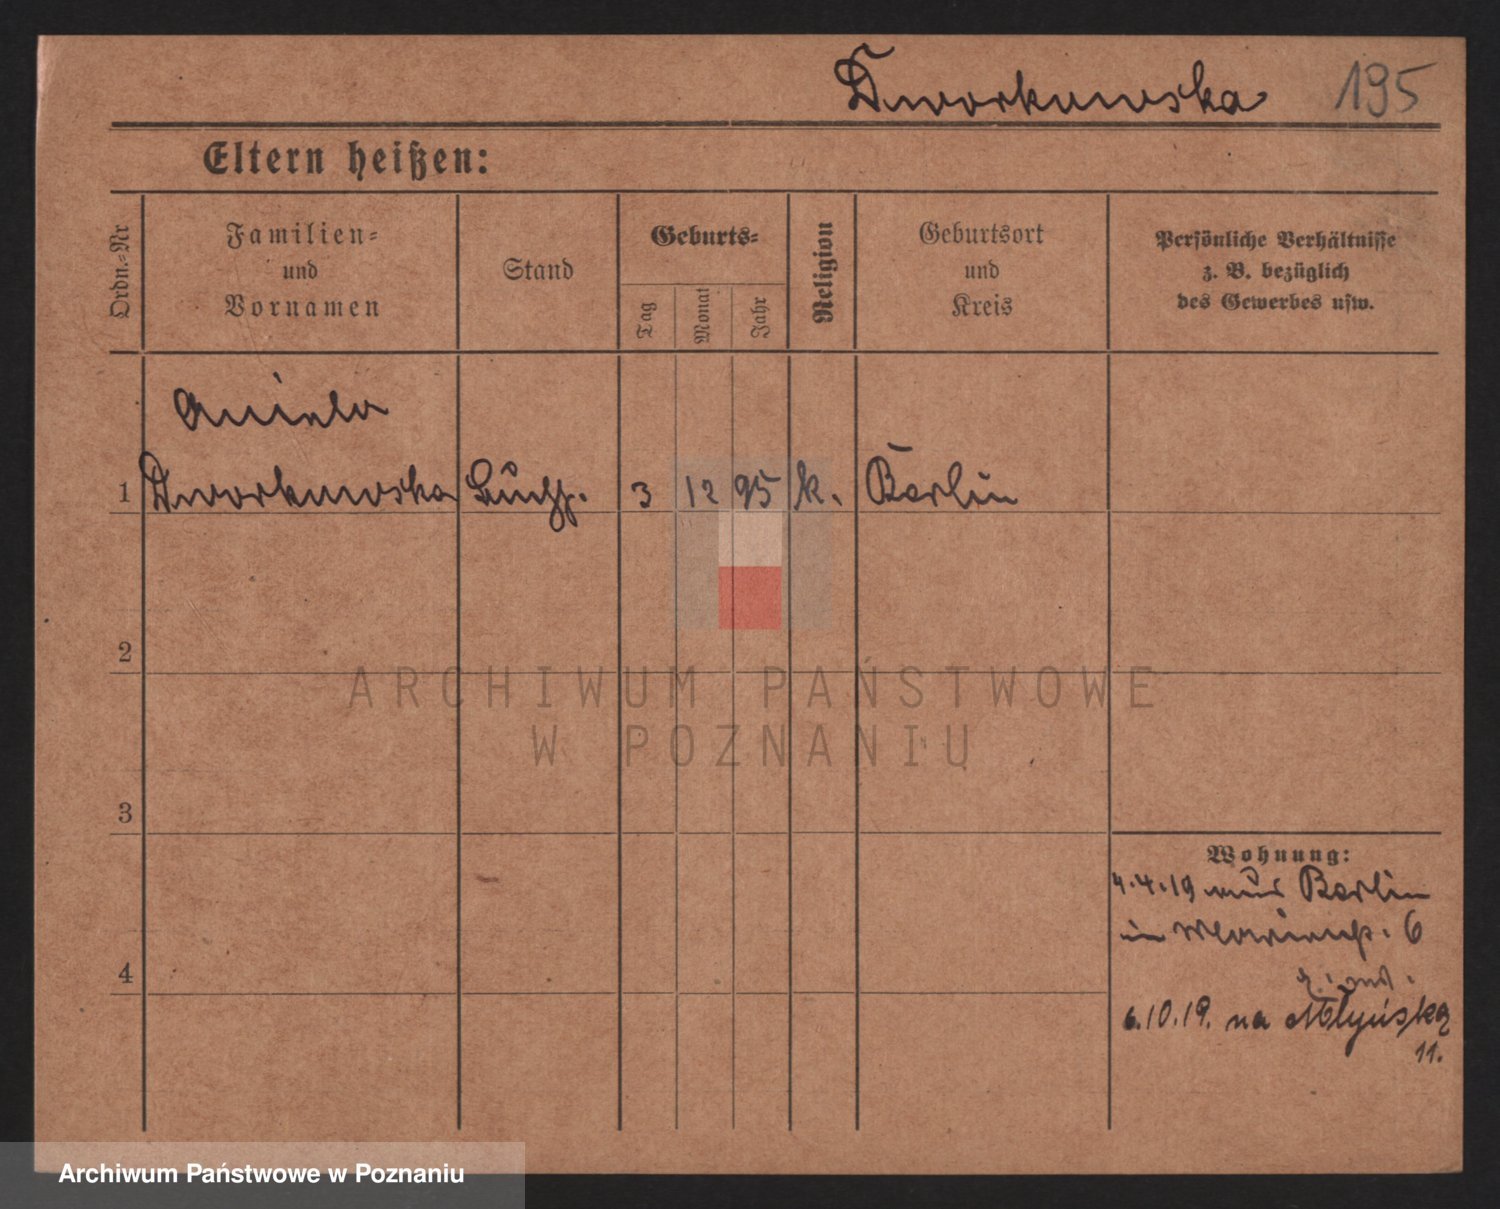 Dworkowska 195
Eltern heißen:
Ordn.-Nr
Familien-
und
Vornamen
Stand
Geburts-
Tag
Monat
Jahr
Religion
Geburtsort
und
Kreis
Persönliche Verhältnisse
z. B. bezüglich
des Gewerbes usw.
Aniela
1 Dworkowska 3 12 95 k. Berlin
2
3
4
Wohnung:
4.4.19 aus Berlin
in 6
6.10.19. na Młyńską
11.
ARCHIWUM PAŃSTWOWE
W POZNANIU
Archiwum Państwowe w Poznaniu